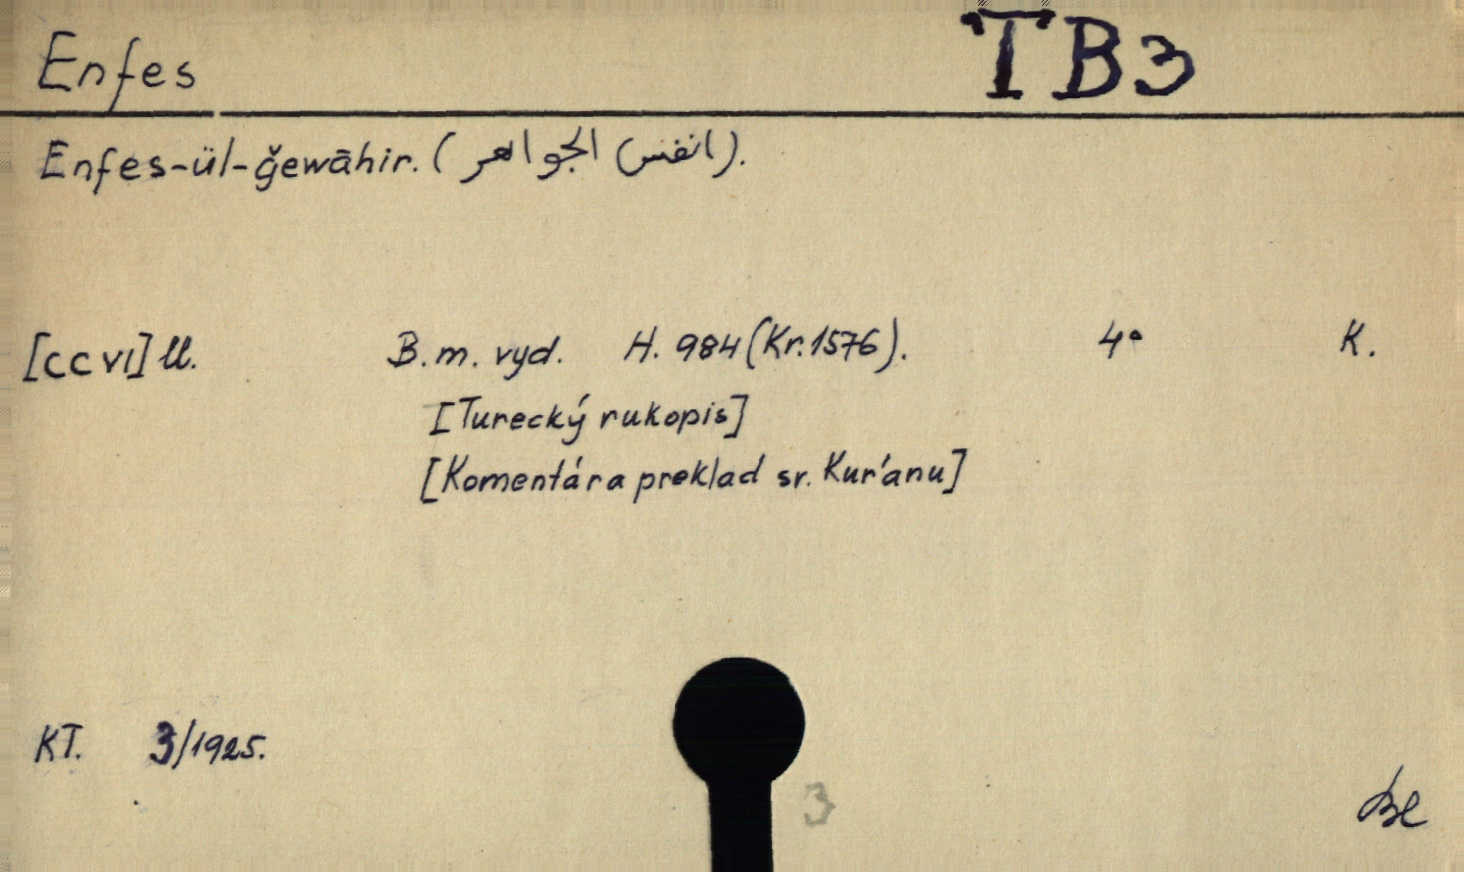 Enfes TB3
Enfes-ül-ğewāhir. (انفس الجواهر).
[CCVI] ll. B.m. vyd. H. 984 (Kr. 1576). 4° K.
[Turecký rukopis]
[Komentár a preklad sr. Kur'anu]
KT. 3/1925.
3